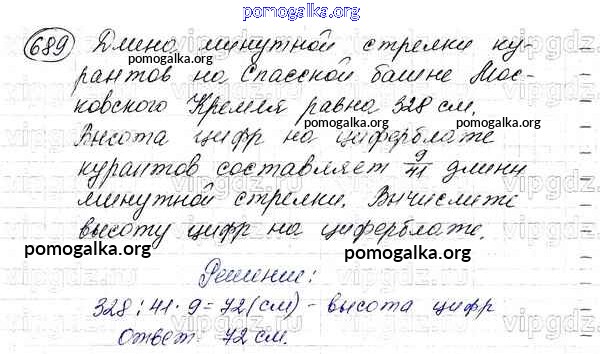 pomogalka.org
689 Длина минутной стрелки ку-
рантов на Спасской башне Мос-
ковского Кремля равна 328 см.
Высота цифр на циферблате
курантов составляет 9/41 длины
минутной стрелки. Вычислите
высоту цифр на циферблате.
pomogalka.org
pomogalka.org
pomogalka.org
pomogalka.org
pomogalka.org
pomogalka.org
Решение:
328 : 41 · 9 = 72 (см) - высота цифр
Ответ: 72 см.
pomogalka.org
vipgdz.com